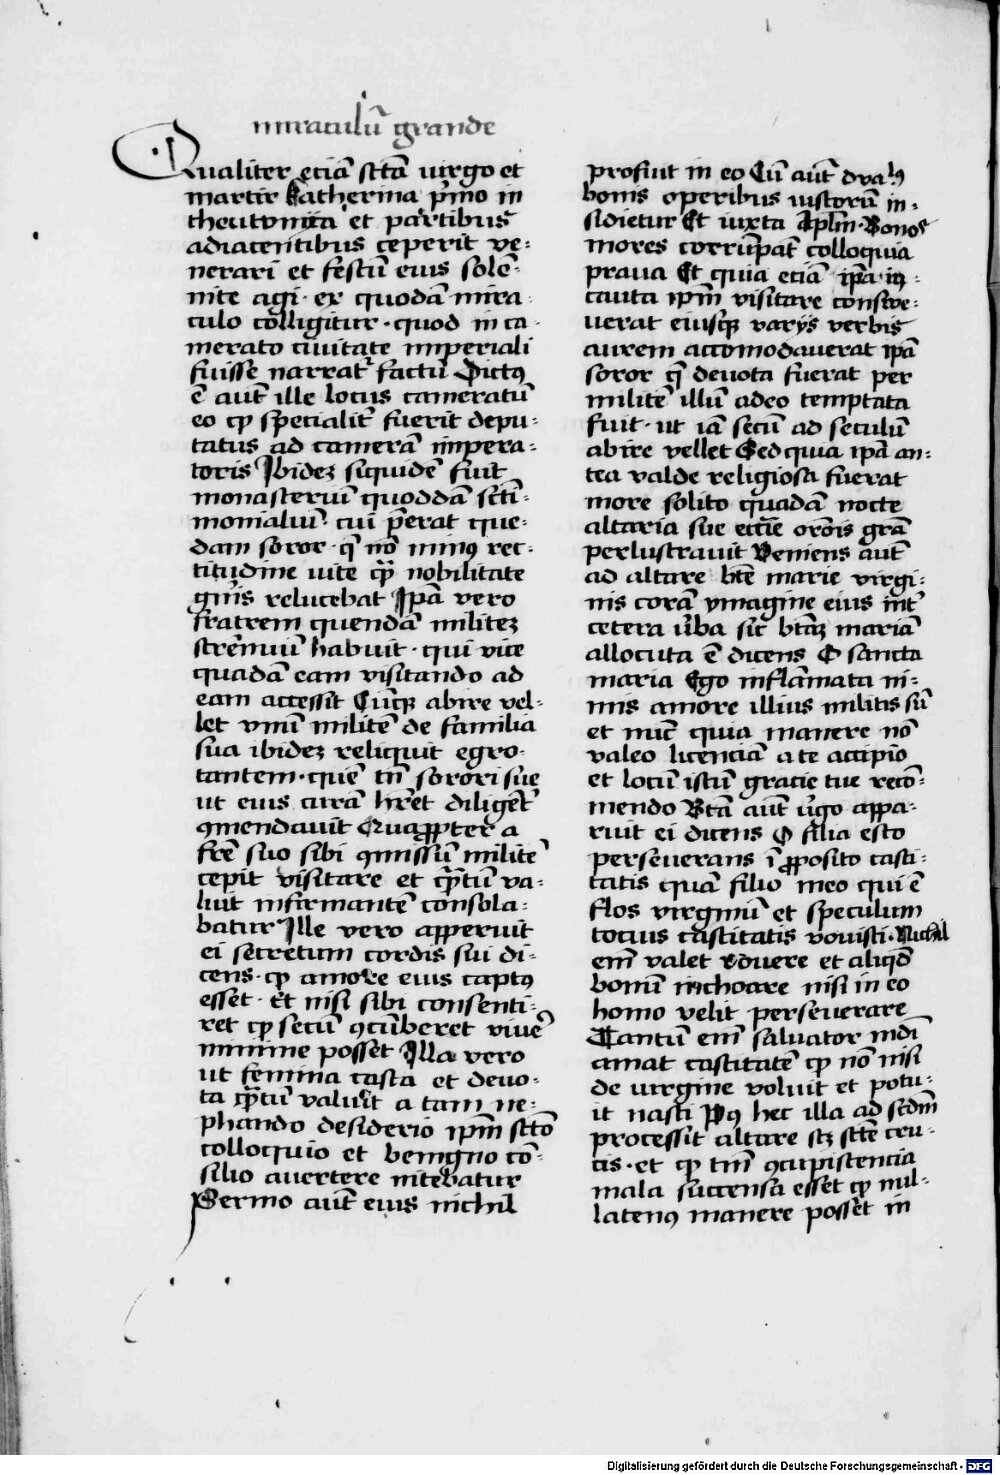 miraculū grande
Qualiter eciā sctā uirgo et
martir katherina pͥmo in
theutonia et partibus
adiacentibus ceperit ve-
nerari et festū eius solē-
nite agi · ex quodā mira-
culo colligitur · quod in ca-
merato ciuitate imperiali
fuisse narratͬ factū Dictꝯ
ē aut̄ ille locus cameratū
eo ꝙ specialit̄ fuerit depu-
tatus ad camerā impera-
toris Ibidez siquidē fuit
monasteriū quoddā scti-
monialiū · cui p̄erat que-
dam soror · q̄ nō minꝯ rec-
titudine uite q̄ꝫ nobilitate
gnͥis relucebat Ipā vero
fratrem quendā militez
strēnuū habuit · qui vice
quadā eam visitando ad
eam accessit Cūqꝫ abire vel-
let vnū militē de familia
sua ibidez reliquit egro-
tantem · quē tn̄ sorori sue
ut eius curā hret diligēt̄
ꝯmendauit Quaꝓpter a
fr̄e suo sibi ꝯmissū militē
cepit visitare et q̄ꝫtū va-
luit infirmantē consola-
batur Ille vero apperuit
ei secretum cordis sui di-
cens · ꝙ amore eius captꝯ
esset · Et nisi sibi consenti-
ret ꝙ secū ꝯcūberet viuē
minime posset Illa vero
ut femina casta et deuo-
ta q̄ꝫtū valuit a tam ne-
phando desiderio ip̄m scto
colloquio et benigno cō-
silio auertere nitebatur
Sermo aut̄ eius nichil
profuit in eo Cū aut̄ dyabꝯ
bonis operibus iustorū in-
sidietur Et iuxta Apl̄m · Bonos
mores corrūpāt colloquia
praua Et quia eciā ip̄a in-
cauta ip̄m visitare conswe-
uerat eiusqꝫ varijs verbis
aurem accomodauerat ip̄a
soror q̄ deuota fuerat per
militē illū adeo temptata
fuit · ut iā secū ad seculū
abire vellet Sed quia ip̄a an-
tea valde religiosa fuerat
more solito quadā nocte
altaria sue eccīe orōis grā
perlustrauit Veniens aut̄
ad altare btē marie virgi-
nis corā ymagine eius int̄
cetera v̄ba sic btāꝫ mariā
allocuta ē dicens O sancta
maria Ego inflāmata ni-
mis amore illius militis sū
et nūc quia manere nō
valeo licenciā a te accipio
et locū istū gracie tue recō-
mendo Btā aut̄ v̄go appa-
ruit ei dicens O filia esto
perseuerans ī ꝓposito casti-
tatis quā filio meo qui ē
flos virginū et speculum
tocius castitatis vouisti · Nichil
em̄ valet vouere et aliqd̄
bonū inchoare nisi in eo
homo velit perseuerare
Tantū em̄ saluator mdi
amat castitatē ꝙ nō nisi
de uirgine voluit et potu-
it nasci Pꝯ hec illa ad scdm̄
processit altare scꝫ sctē cru-
cis · et ꝙ tm̄ ꝯcupiscencia
mala succensa esset ꝙ nul-
latenꝯ manere posset in